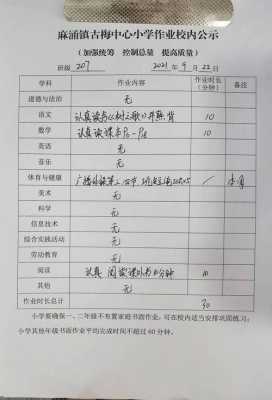 麻涌镇古梅中心小学作业校内公示
(加强统筹 控制总量 提高质量)
班级 207 2021年9月22日
学科 作业内容 作业时长(分钟) 备注
道德与法治 无
语文 认真读书《树之歌》并熟背 10
数学 认真读课书 10
英语 无
音乐 无
体育与健康 /
美术 无
科学 无
信息技术 无
综合实践活动 无
劳动教育 无
阅读 认真阅读课外书10分钟 10
其他 无
作业时长总计 30
小学要确保一、二年级不布置家庭书面作业,可在校内适当安排巩固练习;
小学其他年级书面作业平均完成时间不超过60分钟。